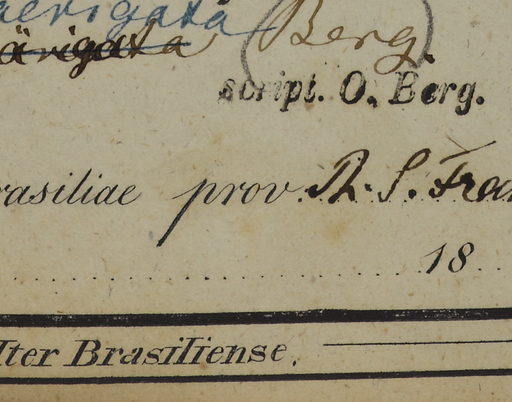 aevigata (Berg)
ärigata
script. O. Berg.
rasiliae prov. R. S. Fran
18
Iter Brasiliense.